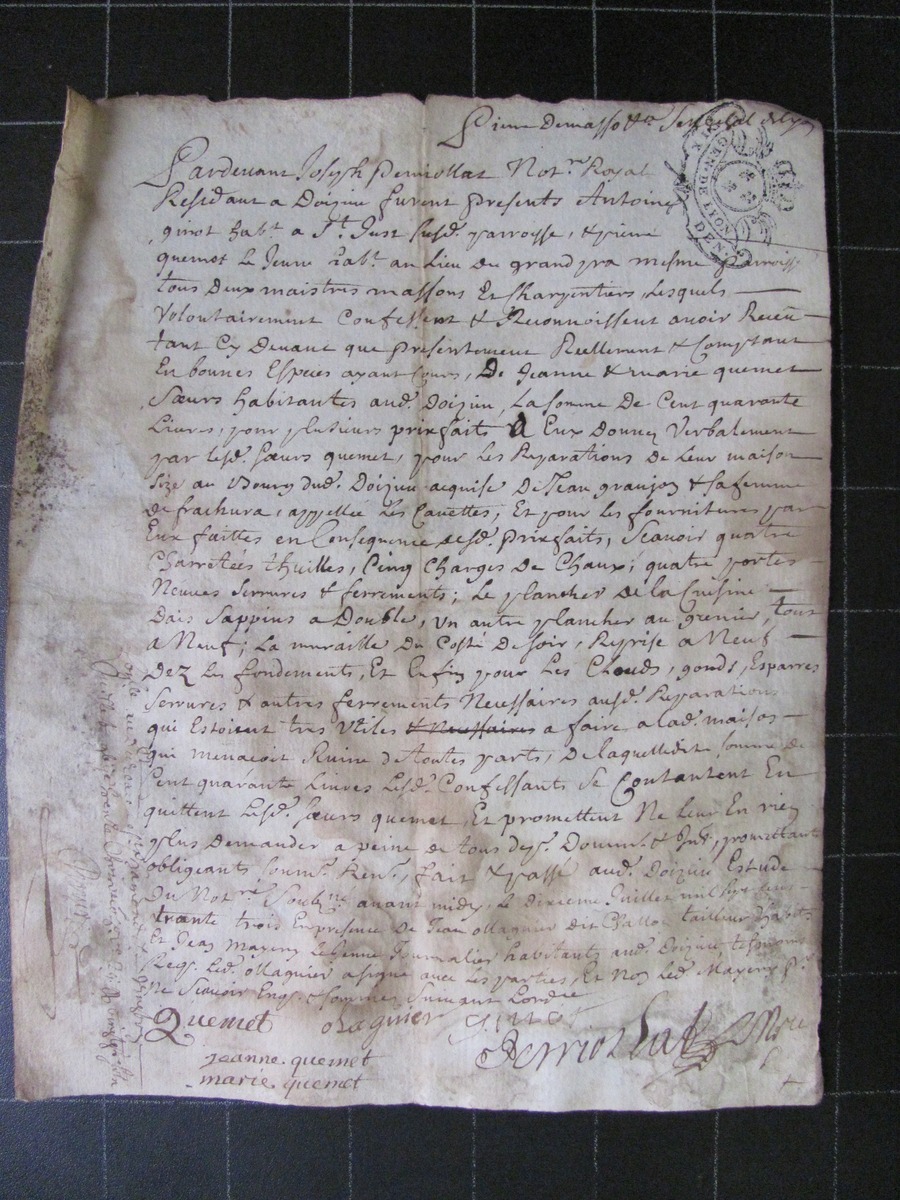 GEN. DE LYON
DEN
Pardevant Joseph Perriollat Not.re Royal
Residant a Doizieu furent presents Antoine
ginot hab.t a S.t Just susd. parroisse, & pierre
quemet le Jeune hab.t au Lieu du grand pra mesme parroisse
tous Deux maistres massons Et Charpentiers, Lesquels
Volontairement Confessent & Reconnoissent avoir Receu
tant Cy Devant que presentement Reellement & Comptant
En bonnes Especes ayant Cours, De Jeanne & marie quemet
Sœurs habitantes aud. Doizieu, La somme De Cent quarante
Livres, pour plusieurs prixfaits A Eux Donnez Verbalement
par lesd. sœurs quemet, pour les Reparations de Leur maison
Size au Bourg dud. Doizieu acquise De Jean granjon & sa femme
de frachura, appellée Les Cavettes, Et pour les fournitures par
Eux faittes en Consequence desd. prixfaits, Scavoir quatre
Charretées thuilles, Cinq Charges De Chaux, quatre portes
Neuves serrures & ferrements; Le plancher De la Cuisine
Dais Sappins a Double, un autre plancher au grenier, tout
a Neuf; La muraille Du Costé De soir, Reprise a Neuf
Dez Les fondements, Et Enfin pour Les Clouds, gonds, Esparres
Serrures & autres ferrements Necessaires ausd. Reparations
qui Estoient tres Utiles & Necessaires a faire a lad. maison
qui menacoit Ruine De toutes parts, De laquelle somme de
Cent quarante Livres Lesd. Confessants se Contantent En
quittent Lesd. sœurs quemet, Et promettent Ne leur En rien
plus Demander a peine de tous desp. Domm. & Int., promettants
obligeants soum. Ren., fait & passé aud. Doizieu Estude
Du Not.re Soubz.né avant midy, Le dixieme Juillet mil sept cens
trante trois En presence De Jean Magnier dit Tailleur habit.
Et Jean Mayeny Le Jeune Journalier habitants aud. Doizieu tesmoins
Req. Led. Magnier a signé avec Les parties, Et Non Led. Mayeny p.r
Ne Scavoir Enq. & sommés Suivant Lordce
Quemet Magnier ginot
Perriollat Nore
jeanne quemet
marie quemet